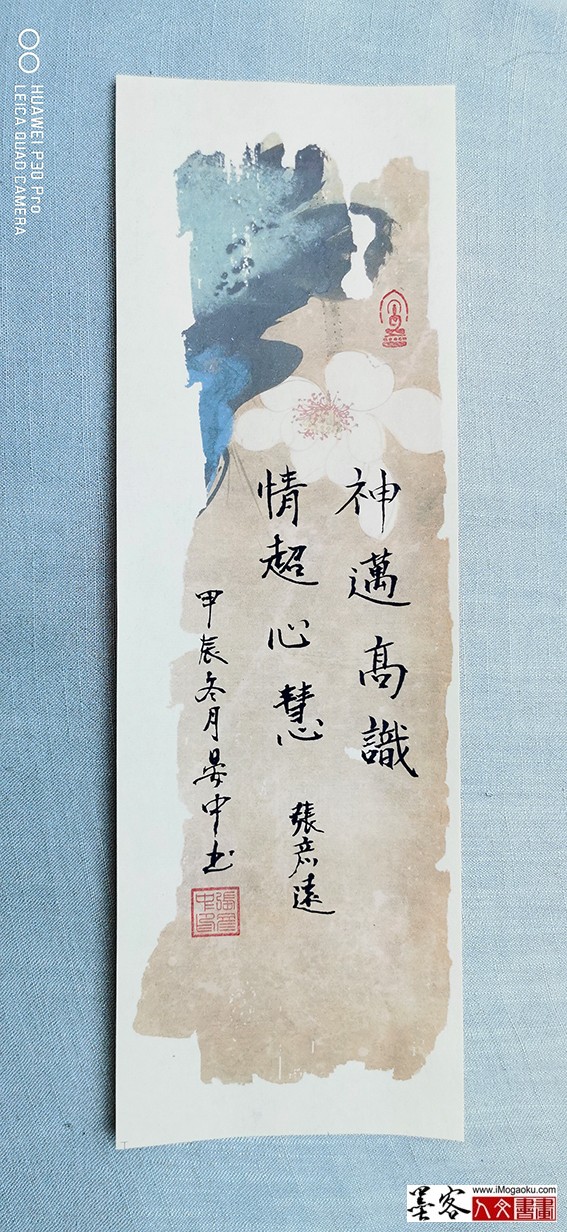 神邁髙識
情超心慧
張彦遠
甲辰冬月晏中书
張晏中印
HUAWEI P30 Pro
LEICA QUAD CAMERA
墨客
www.iMogaoku.com
人文書畫